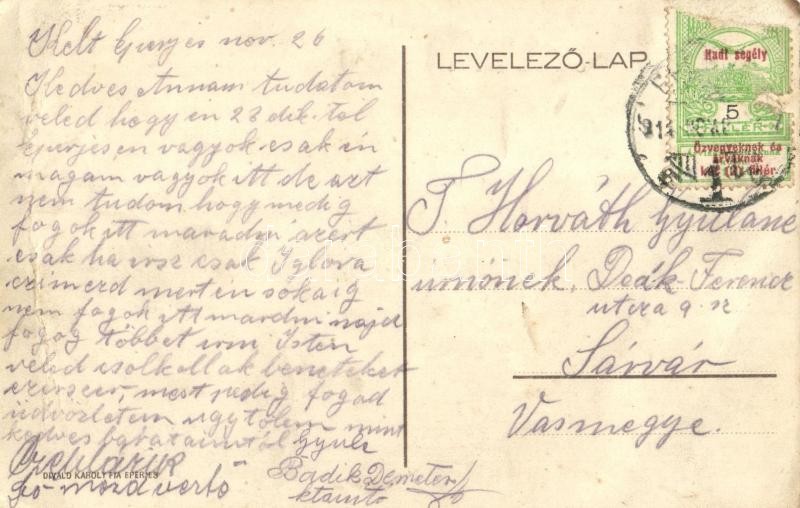 Kelt Eperjes nov. 26
Kedves Annám tudatom
veled hogy én 23 dik tól
Eperjesen vagyok csak én
magam vagyok itt de azt
nem tudom hogy medig
fogok itt maradni azért
csak ha irsz csak Iglora
czimezd mert én sokaig
nem fogok itt maradni majd
fogog többet irni Isten
veled csolkollak beneteket
ezerszer, most pedig fogad
üdvözletem ugy tölem mint
kedves
Gyula
Badik Demeter
DIVALD KÁROLY FIA EPERJES
LEVELEZŐ-LAP
Hadi segély
5
FILLÉR
Özvegyeknek és
árváknak
két (2) fillér
T. Horváth Gyuláne
urnönek. Deák Ferencz
utcza 9. sz
Sárvár
Vasmegye.